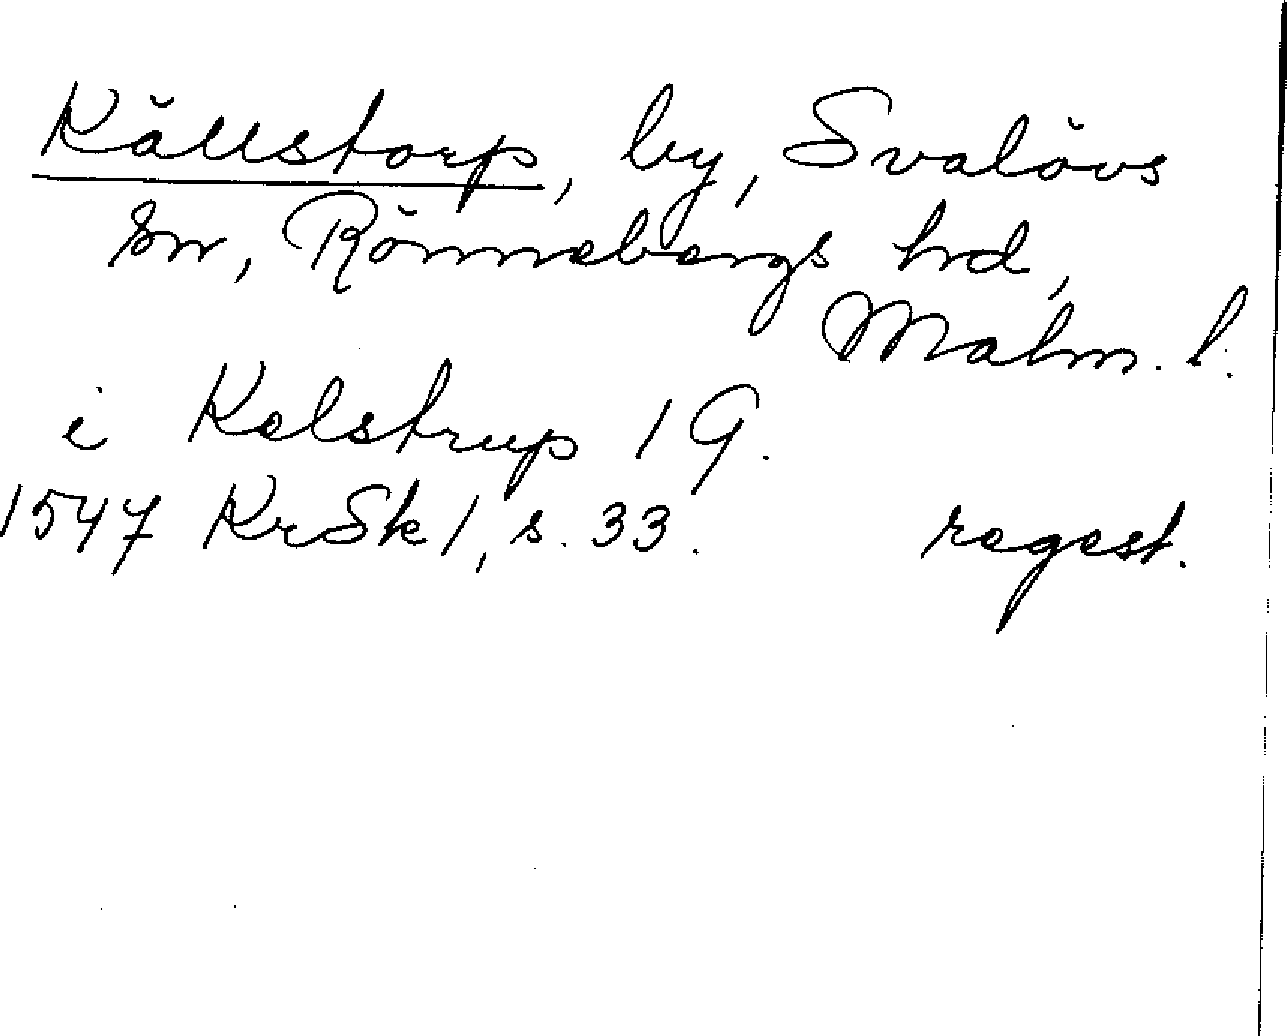 Källstorp, by, Svalövs
sn, Rönnebergs hd,
Malm. l.
i Kelstrup 1 G.
1547 KrSk 1, s. 33. regest.